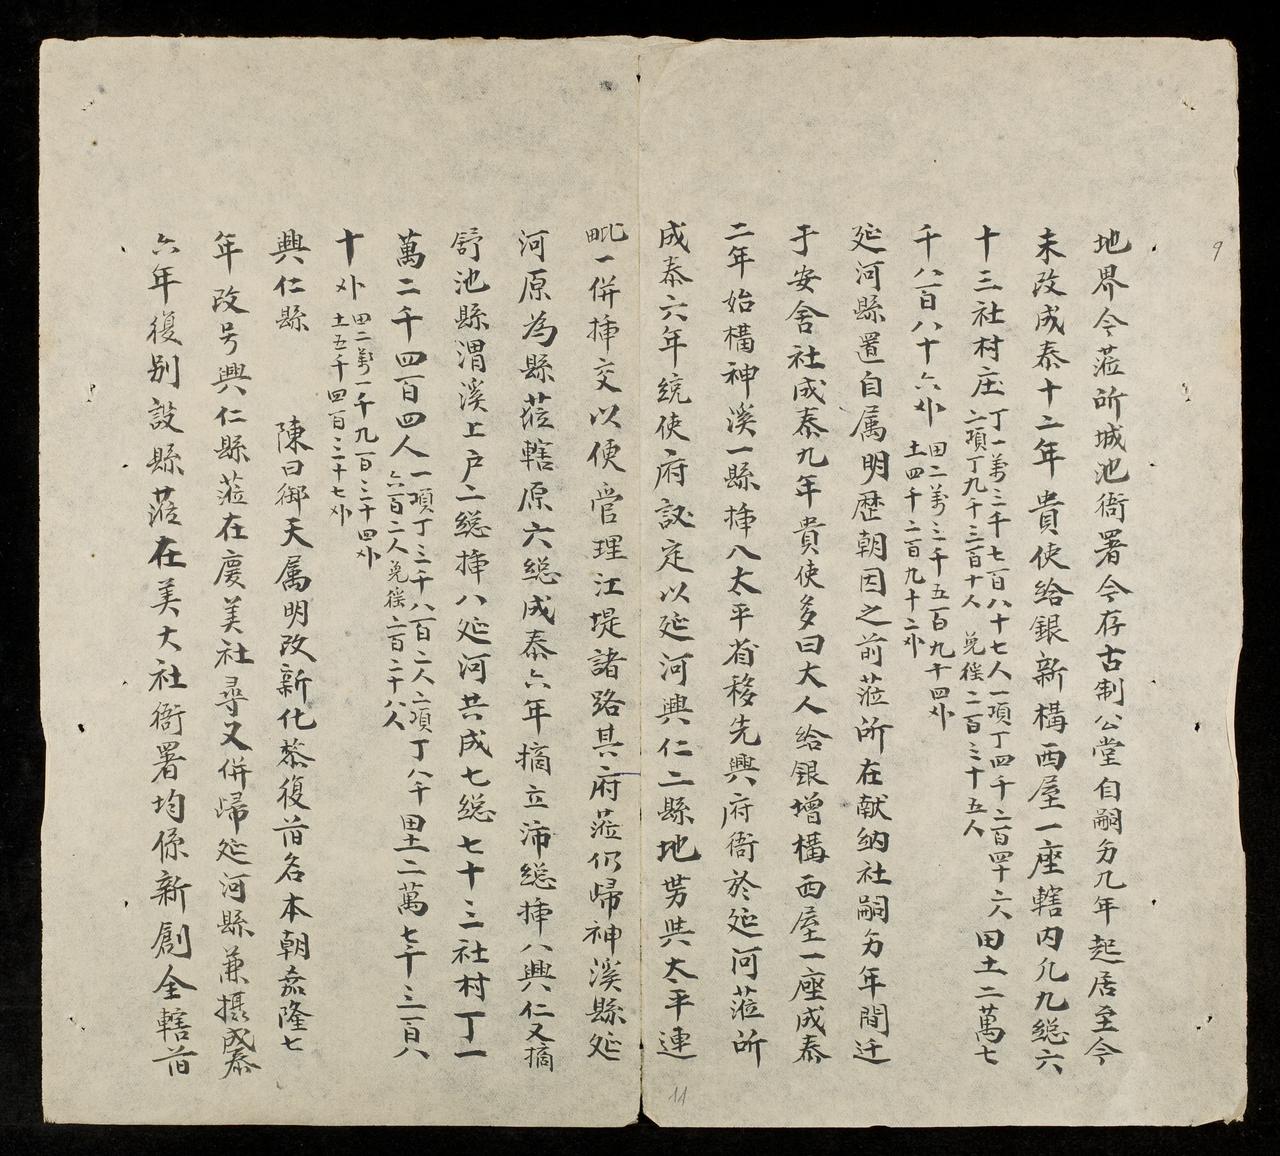 9
地界今蒞所城池衙署今存古制公堂自嗣𠫾九年起居至今
未改成泰十二年貴使給銀新構西屋一座轄内凢九総六
十三社村庄丁一萬三千七百八十七人一項丁四千二百四十六人
二項丁九千三百十人免徭二百三十五人田土二萬七
千八百八十六𠦳田二萬三千五百九十四𠦳
土四千二百九十二𠦳
延河縣置自属明歴朝因之前蒞所在献納社嗣𠫾年間迁
于安舍社成泰九年貴使多曰大人給銀增構西屋一座成泰
二年始構神溪一縣揷入太平省移先興府衙於延河蒞所
成泰六年統使府議定以延河興仁二縣地势與太平連
毗一併揷交以便管理江堤諸路其府蒞仍歸神溪縣延
河原為縣蒞轄原六総成泰六年摘立沛総揷入興仁又摘
舒池縣渭溪上户二総揷入延河共成七総七十三社村丁一
萬二千四百四人一項丁三千八百二人二項丁八千
六百二人免徭二百二十八人田土二萬七千三百八
十𠦳田二萬一千九百三十四𠦳
土五千四百三十七𠦳
興仁縣 陳曰御天属明改新化黎復前名本朝嘉隆七
年改号興仁縣蒞在慶美社尋又併歸延河縣兼攝成泰
六年復别設縣蒞在美大社衙署均係新創全轄前
11